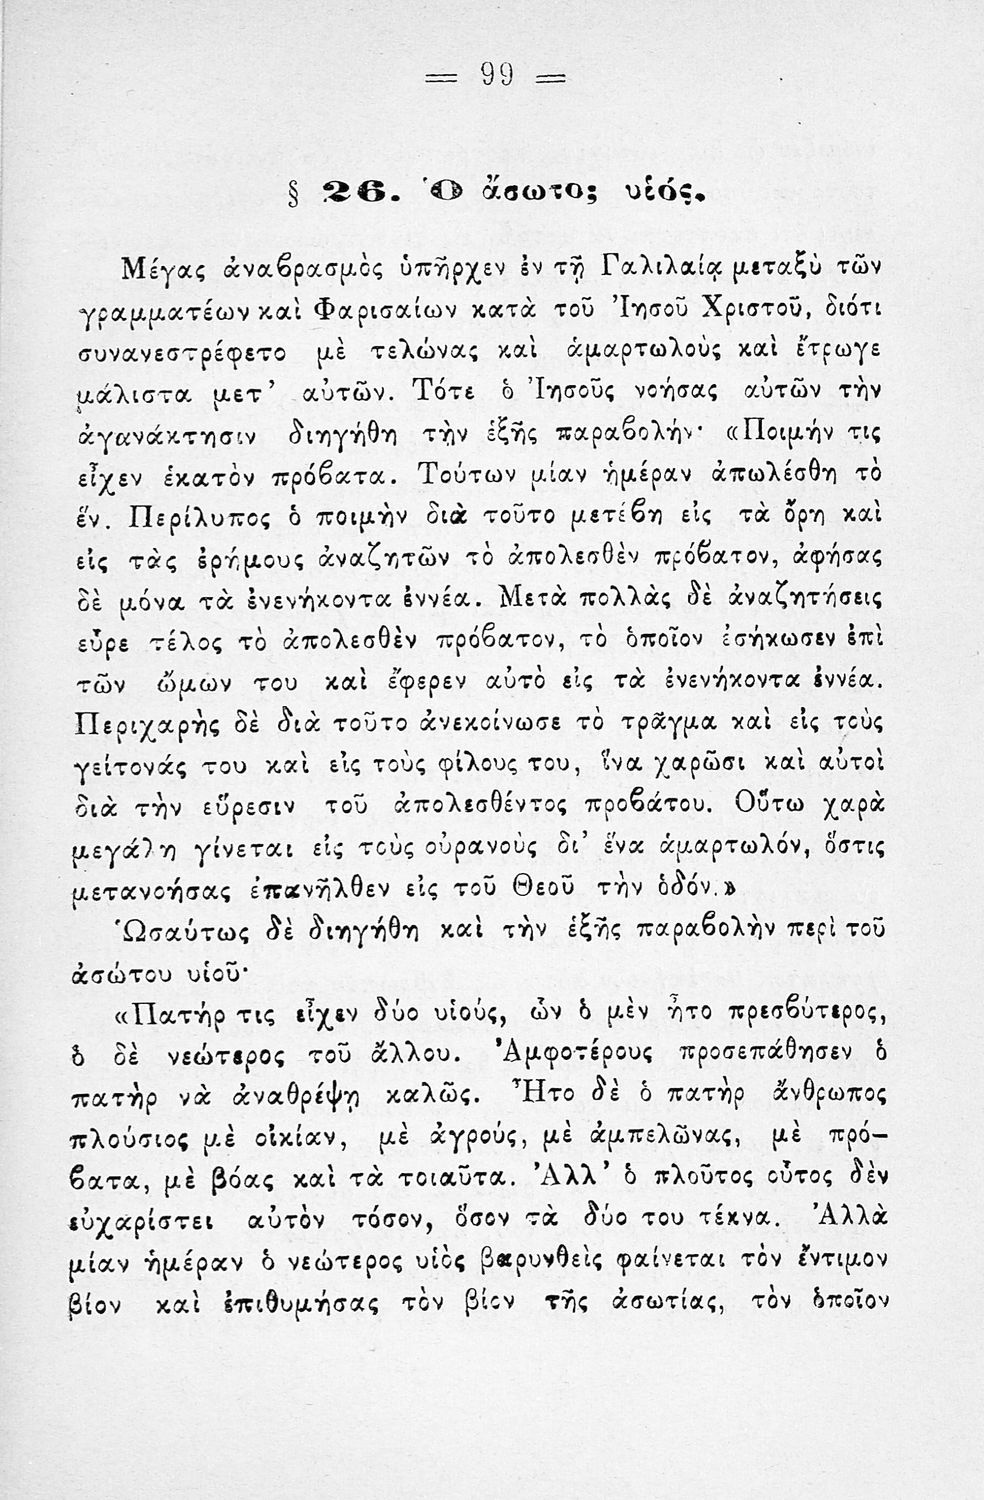 = 99 =
§ 26. Ὁ ἄσωτος υἱός.
Μέγας ἀναβρασμὸς ὑπῆρχεν ἐν τῇ Γαλιλαίᾳ μεταξὺ τῶν
γραμματέων καὶ Φαρισαίων κατὰ τοῦ Ἰησοῦ Χριστοῦ, διότι
συνανεστρέφετο μὲ τελώνας καὶ ἁμαρτωλοὺς καὶ ἔτρωγε
μάλιστα μετ' αὐτῶν. Τότε ὁ Ἰησοῦς νοήσας αὐτῶν τὴν
ἀγανάκτησιν διηγήθη τὴν ἑξῆς παραβολήν· «Ποιμήν τις
εἶχεν ἑκατὸν πρόβατα. Τούτων μίαν ἡμέραν ἀπωλέσθη τὸ
ἕν. Περίλυπος ὁ ποιμὴν διὰ τοῦτο μετέβη εἰς τὰ ὄρη καὶ
εἰς τὰς ἐρήμους ἀναζητῶν τὸ ἀπολεσθὲν πρόβατον, ἀφήσας
δὲ μόνα τὰ ἐνενήκοντα ἐννέα. Μετὰ πολλὰς δὲ ἀναζητήσεις
εὗρε τέλος τὸ ἀπολεσθὲν πρόβατον, τὸ ὁποῖον ἐσήκωσεν ἐπὶ
τῶν ὤμων του καὶ ἔφερεν αὐτὸ εἰς τὰ ἐνενήκοντα ἐννέα.
Περιχαρὴς δὲ διὰ τοῦτο ἀνεκοίνωσε τὸ τρᾶγμα καὶ εἰς τοὺς
γείτονάς του καὶ εἰς τοὺς φίλους του, ἵνα χαρῶσι καὶ αὐτοὶ
διὰ τὴν εὕρεσιν τοῦ ἀπολεσθέντος προβάτου. Οὕτω χαρὰ
μεγάλη γίνεται εἰς τοὺς οὐρανοὺς δι' ἕνα ἁμαρτωλόν, ὅστις
μετανοήσας ἐπανῆλθεν εἰς τοῦ Θεοῦ τὴν ὁδόν.»
Ὡσαύτως δὲ διηγήθη καὶ τὴν ἑξῆς παραβολὴν περὶ τοῦ
ἀσώτου υἱοῦ·
«Πατήρ τις εἶχεν δύο υἱούς, ὧν ὁ μὲν ἦτο πρεσβύτερος,
ὁ δὲ νεώτερος τοῦ ἄλλου. Ἀμφοτέρους προσεπάθησεν ὁ
πατὴρ νὰ ἀναθρέψῃ καλῶς. Ἦτο δὲ ὁ πατὴρ ἄνθρωπος
πλούσιος μὲ οἰκίαν, μὲ ἀγρούς, μὲ ἀμπελῶνας, μὲ πρό-
βατα, μὲ βόας καὶ τὰ τοιαῦτα. Ἀλλ' ὁ πλοῦτος οὗτος δὲν
εὐχαρίστει αὐτὸν τόσον, ὅσον τὰ δύο του τέκνα. Ἀλλὰ
μίαν ἡμέραν ὁ νεώτερος υἱὸς βαρυνθεὶς φαίνεται τὸν ἔντιμον
βίον καὶ ἐπιθυμήσας τὸν βίον τῆς ἀσωτίας, τὸν ὁποῖον